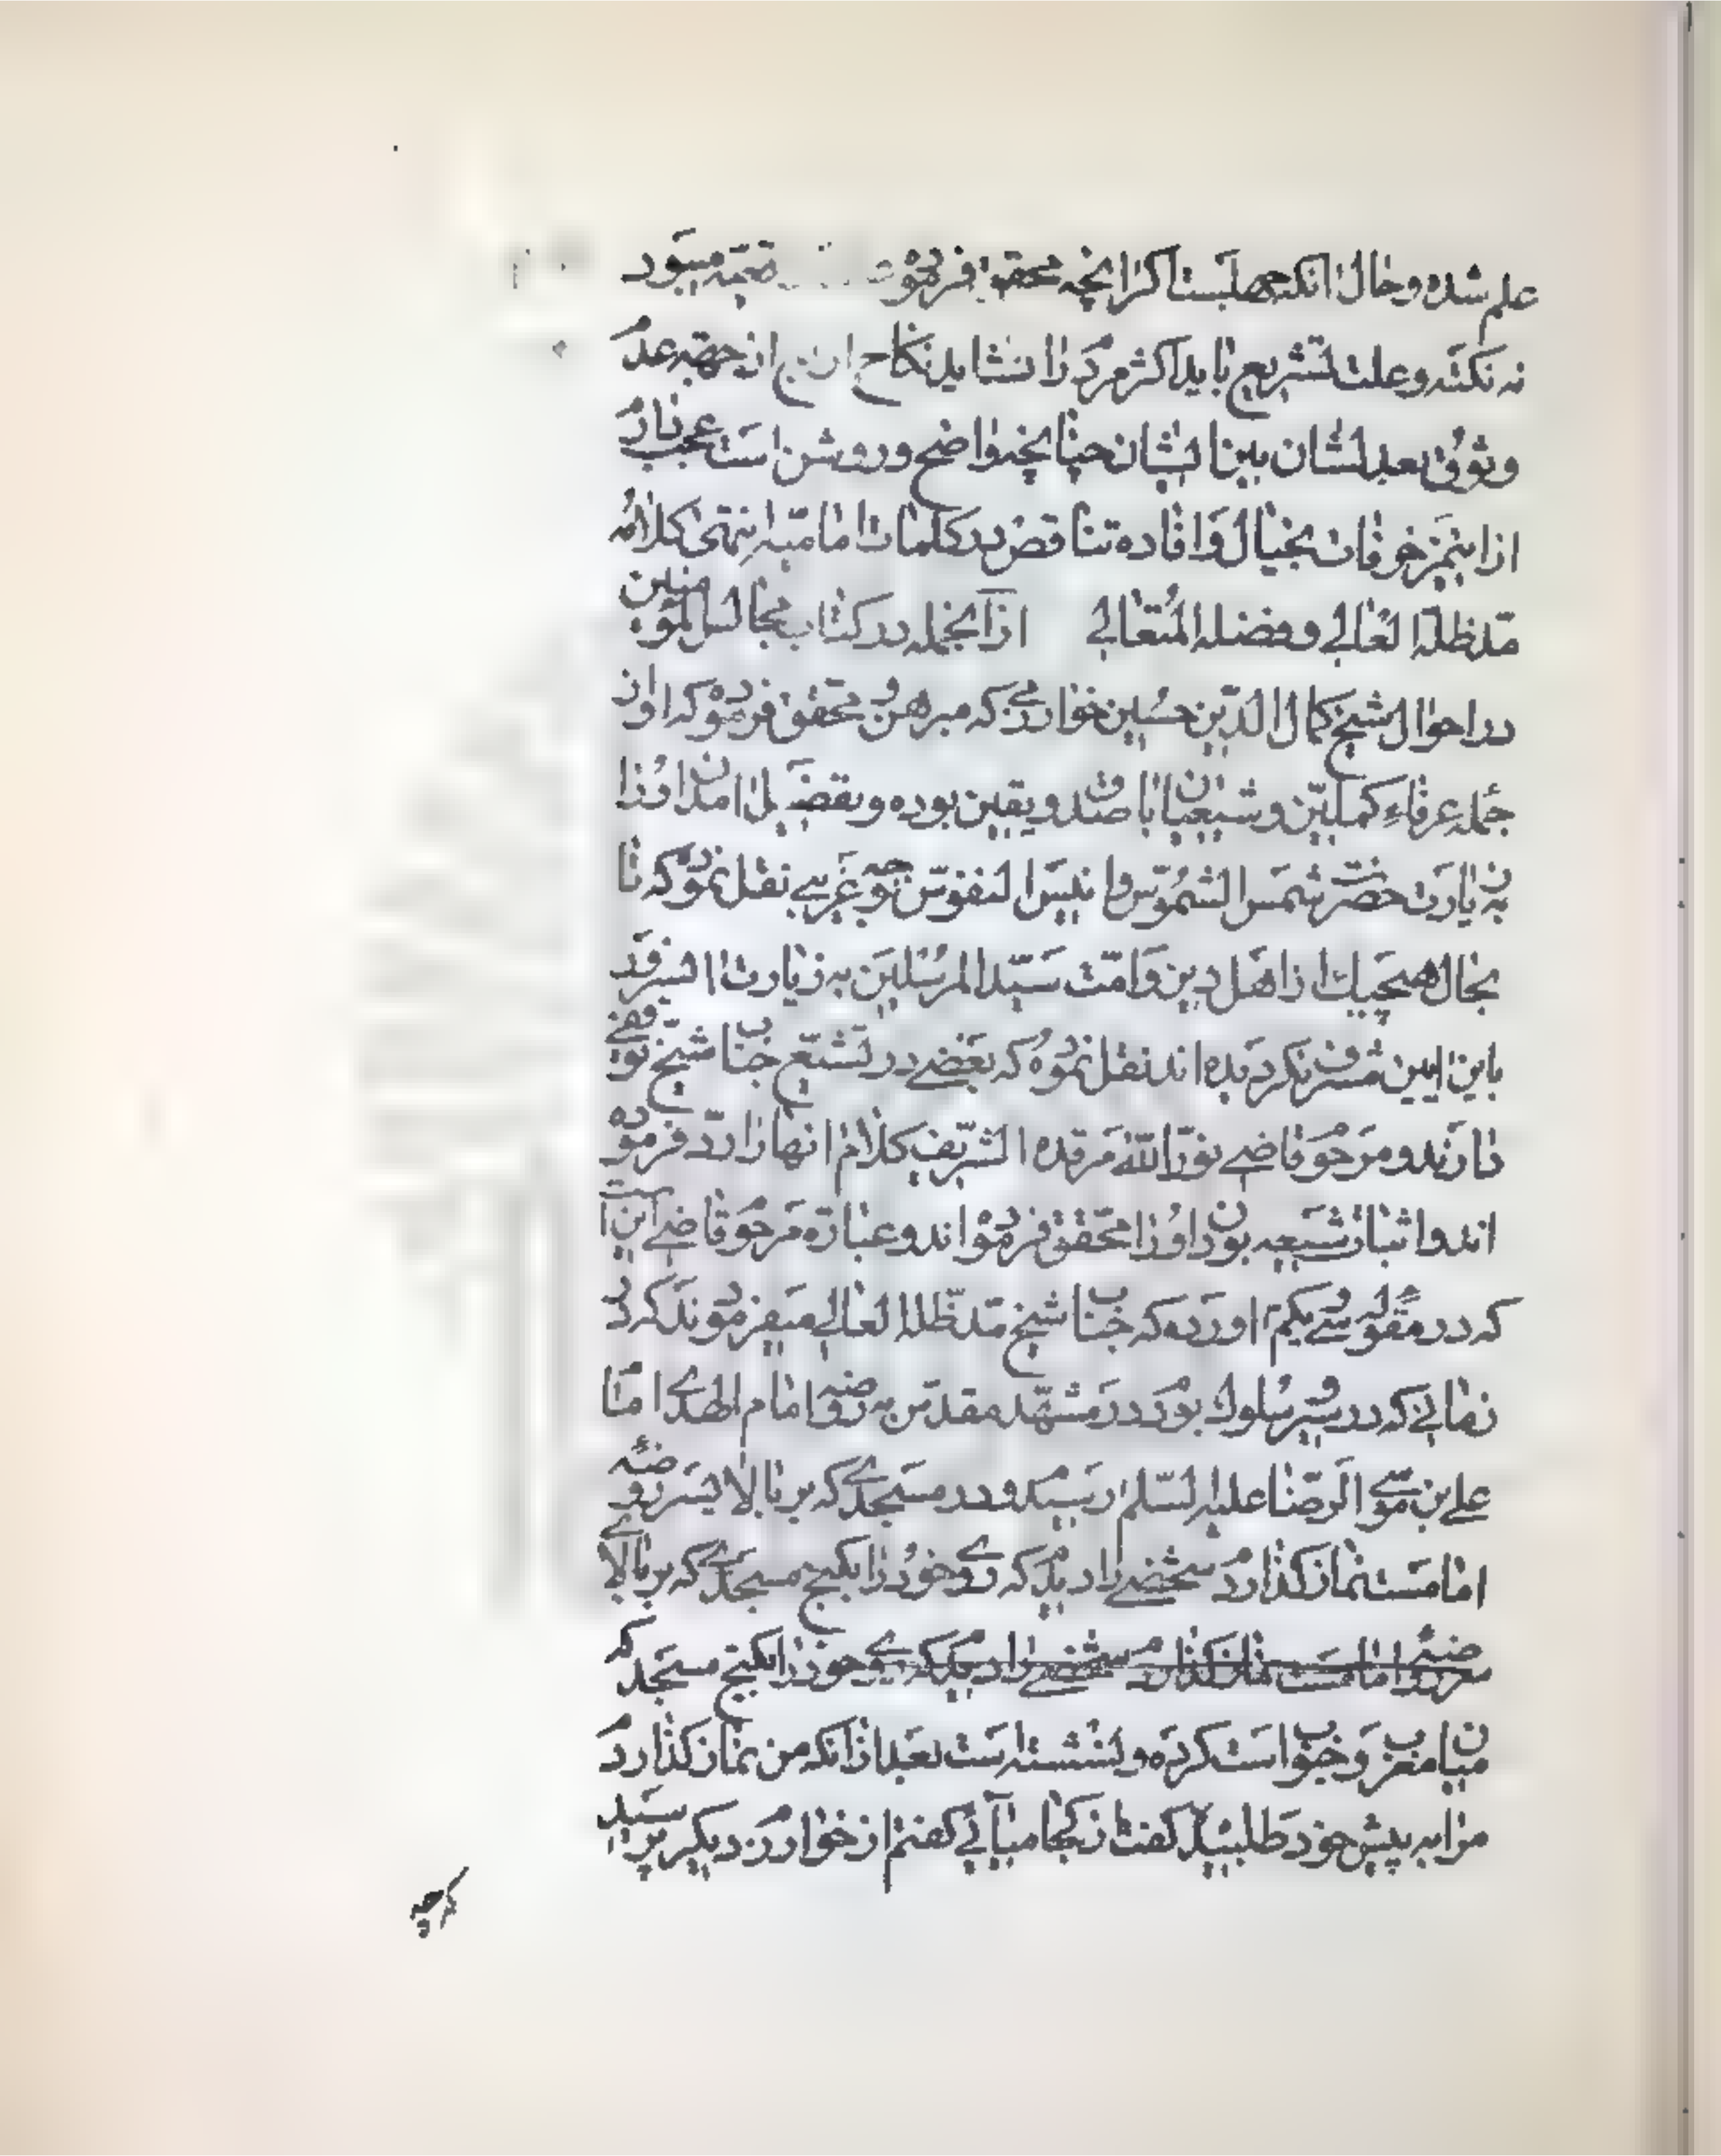 علم شده و حال آنکه چهل بیست اگر آنچه محقق فرموده تتمه میبود
نه نکته و علت تشریع باید اکثر مردم را نشاید نکاح از جهة عدم
وثوق بعدلشان بین ایشان چنانچه واضح و روشن است عجب نارم
از این مزخرفات بخیال و افاده تناقض در کلمات امامیه انتهی کلامه
مد ظله العالی و فضله المتعالی از آنجمله در کتاب مجالس المومنین
در احوال شیخ کمال الدین حسین خوارزمی که مبرهن و محقق فرموده که او از
جمله عرفاء کملین و شیعیان با صدق و یقین بوده و بتفضیل آمدن او را
به زیارت حضرت شمس الشموس و انیس النفوس بوجه غریبی نقل نموده که تا
بحال هیچیک از اهل دین و امت سید المرسلین به زیارت السرقد
باین آیین مشرف نگردیده اند نقل نموده که بعضی در تشیع جناب شیخ توقفی
دارند و مرحوم قاضی نور الله مرقده الشریف کلام انها را رد فرموده
اند و اثبات شیعه بودن او را محقق فرموده اند و عبارة مرحوم قاضی این آ
که در مقوله سی یکم آورده که جناب شیخ مد ظله العالی میفرمودند که در
زمانی که در سیر و سلوک بودم در مشهد مقدس به روضه امام الهدی امام
علی بن موسی الرضا علیه السلم رسیدم و در مسجدی که بر بالای سر روضه
امامست نماز گذاردم شخصی را دیدم که روی خود را بکنج مسجدی که بر بالای
سر روضه امامست نماز گذاردم شخصی را دیدم که روی خود را بکنج مسجد که
میان مغرب و جنوب است کرده و نشسته است بعد از آنکه من نماز گذاردم
مرا به پیش خود طلبید گفت از کجا میآئی گفتم از خوارزم دیگر پرسید
کرچه